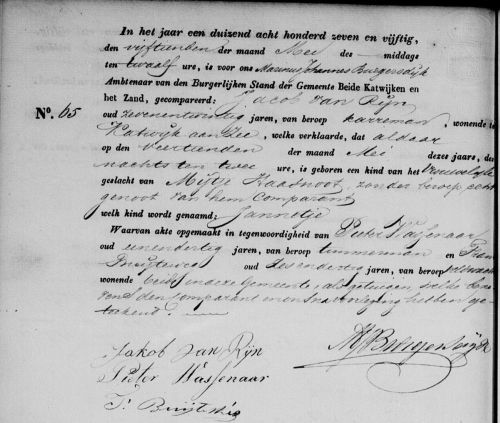 In het jaar een duizend acht honderd zeven en vijftig,
den vijftienden der maand Mei des middags
ten twaalf ure, is voor ons Marinus Johannes Burgersdijk
Ambtenaar van den Burgerlijken Stand der Gemeente Beide Katwijken en
het Zand, gecompareerd: Jacob van Rijn
N°. 65
oud zevenentwintig jaren, van beroep karreman, wonende te
Katwijk aan Zee welke verklaarde, dat aldaar
op den veertienden der maand Mei dezes jaars, des
nachts ten twee ure, is geboren een kind van het vrouwelijk
geslacht van Mijtje Haasnoot, zonder beroep, echt
genoot van hem Comparant
welk kind wordt genaamd: Jannetje
Waarvan akte opgemaakt in tegenwoordigheid van Pieter Wassenaar
oud eenendertig jaren, van beroep timmerman en
oud zesendertig jaren, van beroep
wonende beide in deze Gemeente, als getuigen, welke
den comparant en ons na voorlezing hebben ge-
teekend
Jakob Van Rijn
Pieter Wassenaar